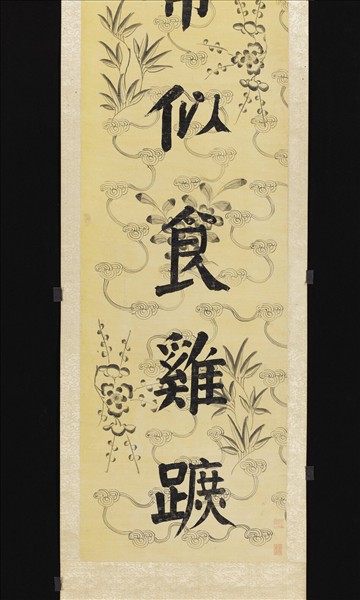 似食雞蹠